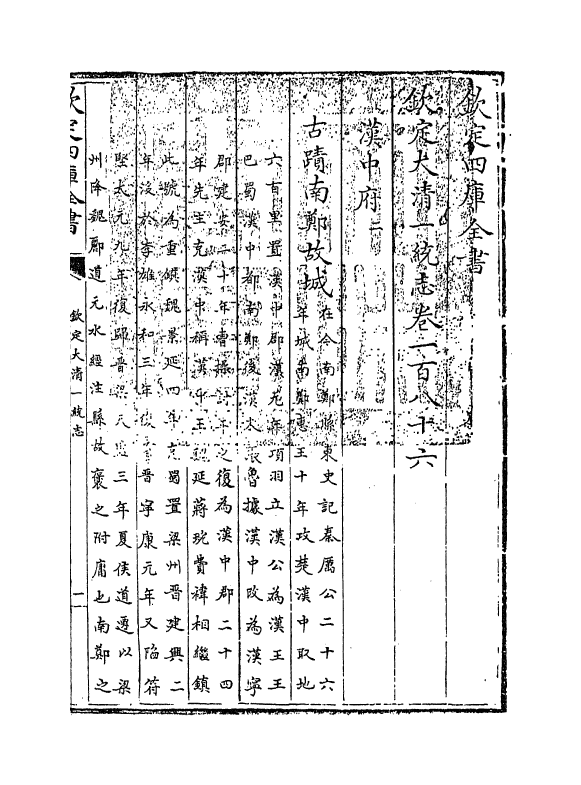 欽定四庫全書
欽定大清一統志卷一百八十六
漢中府二
古蹟南鄭故城在今南鄭縣東史記秦厲公二十六
年城南鄭惠王十年攻楚漢中取地
六百里置漢中郡漢元年項羽立漢公為漢王王
巴蜀漢中都南鄭後漢末張魯據漢中改為漢寧
郡建安二十年曹操討平之復為漢中郡二十四
年先主克漢中稱漢中王 延蔣琬費禕相繼鎮
此號為重鎮魏景延四年 蜀置梁州晉建興二
年沒於李雄永和三年 晉寧康元年又陷符
堅太元九年復歸晉梁天 三年夏侯道遷以梁
州降魏酈道元水經注縣故褒之附庸也南鄭之
欽定四庫全書
欽定大清一統志
一